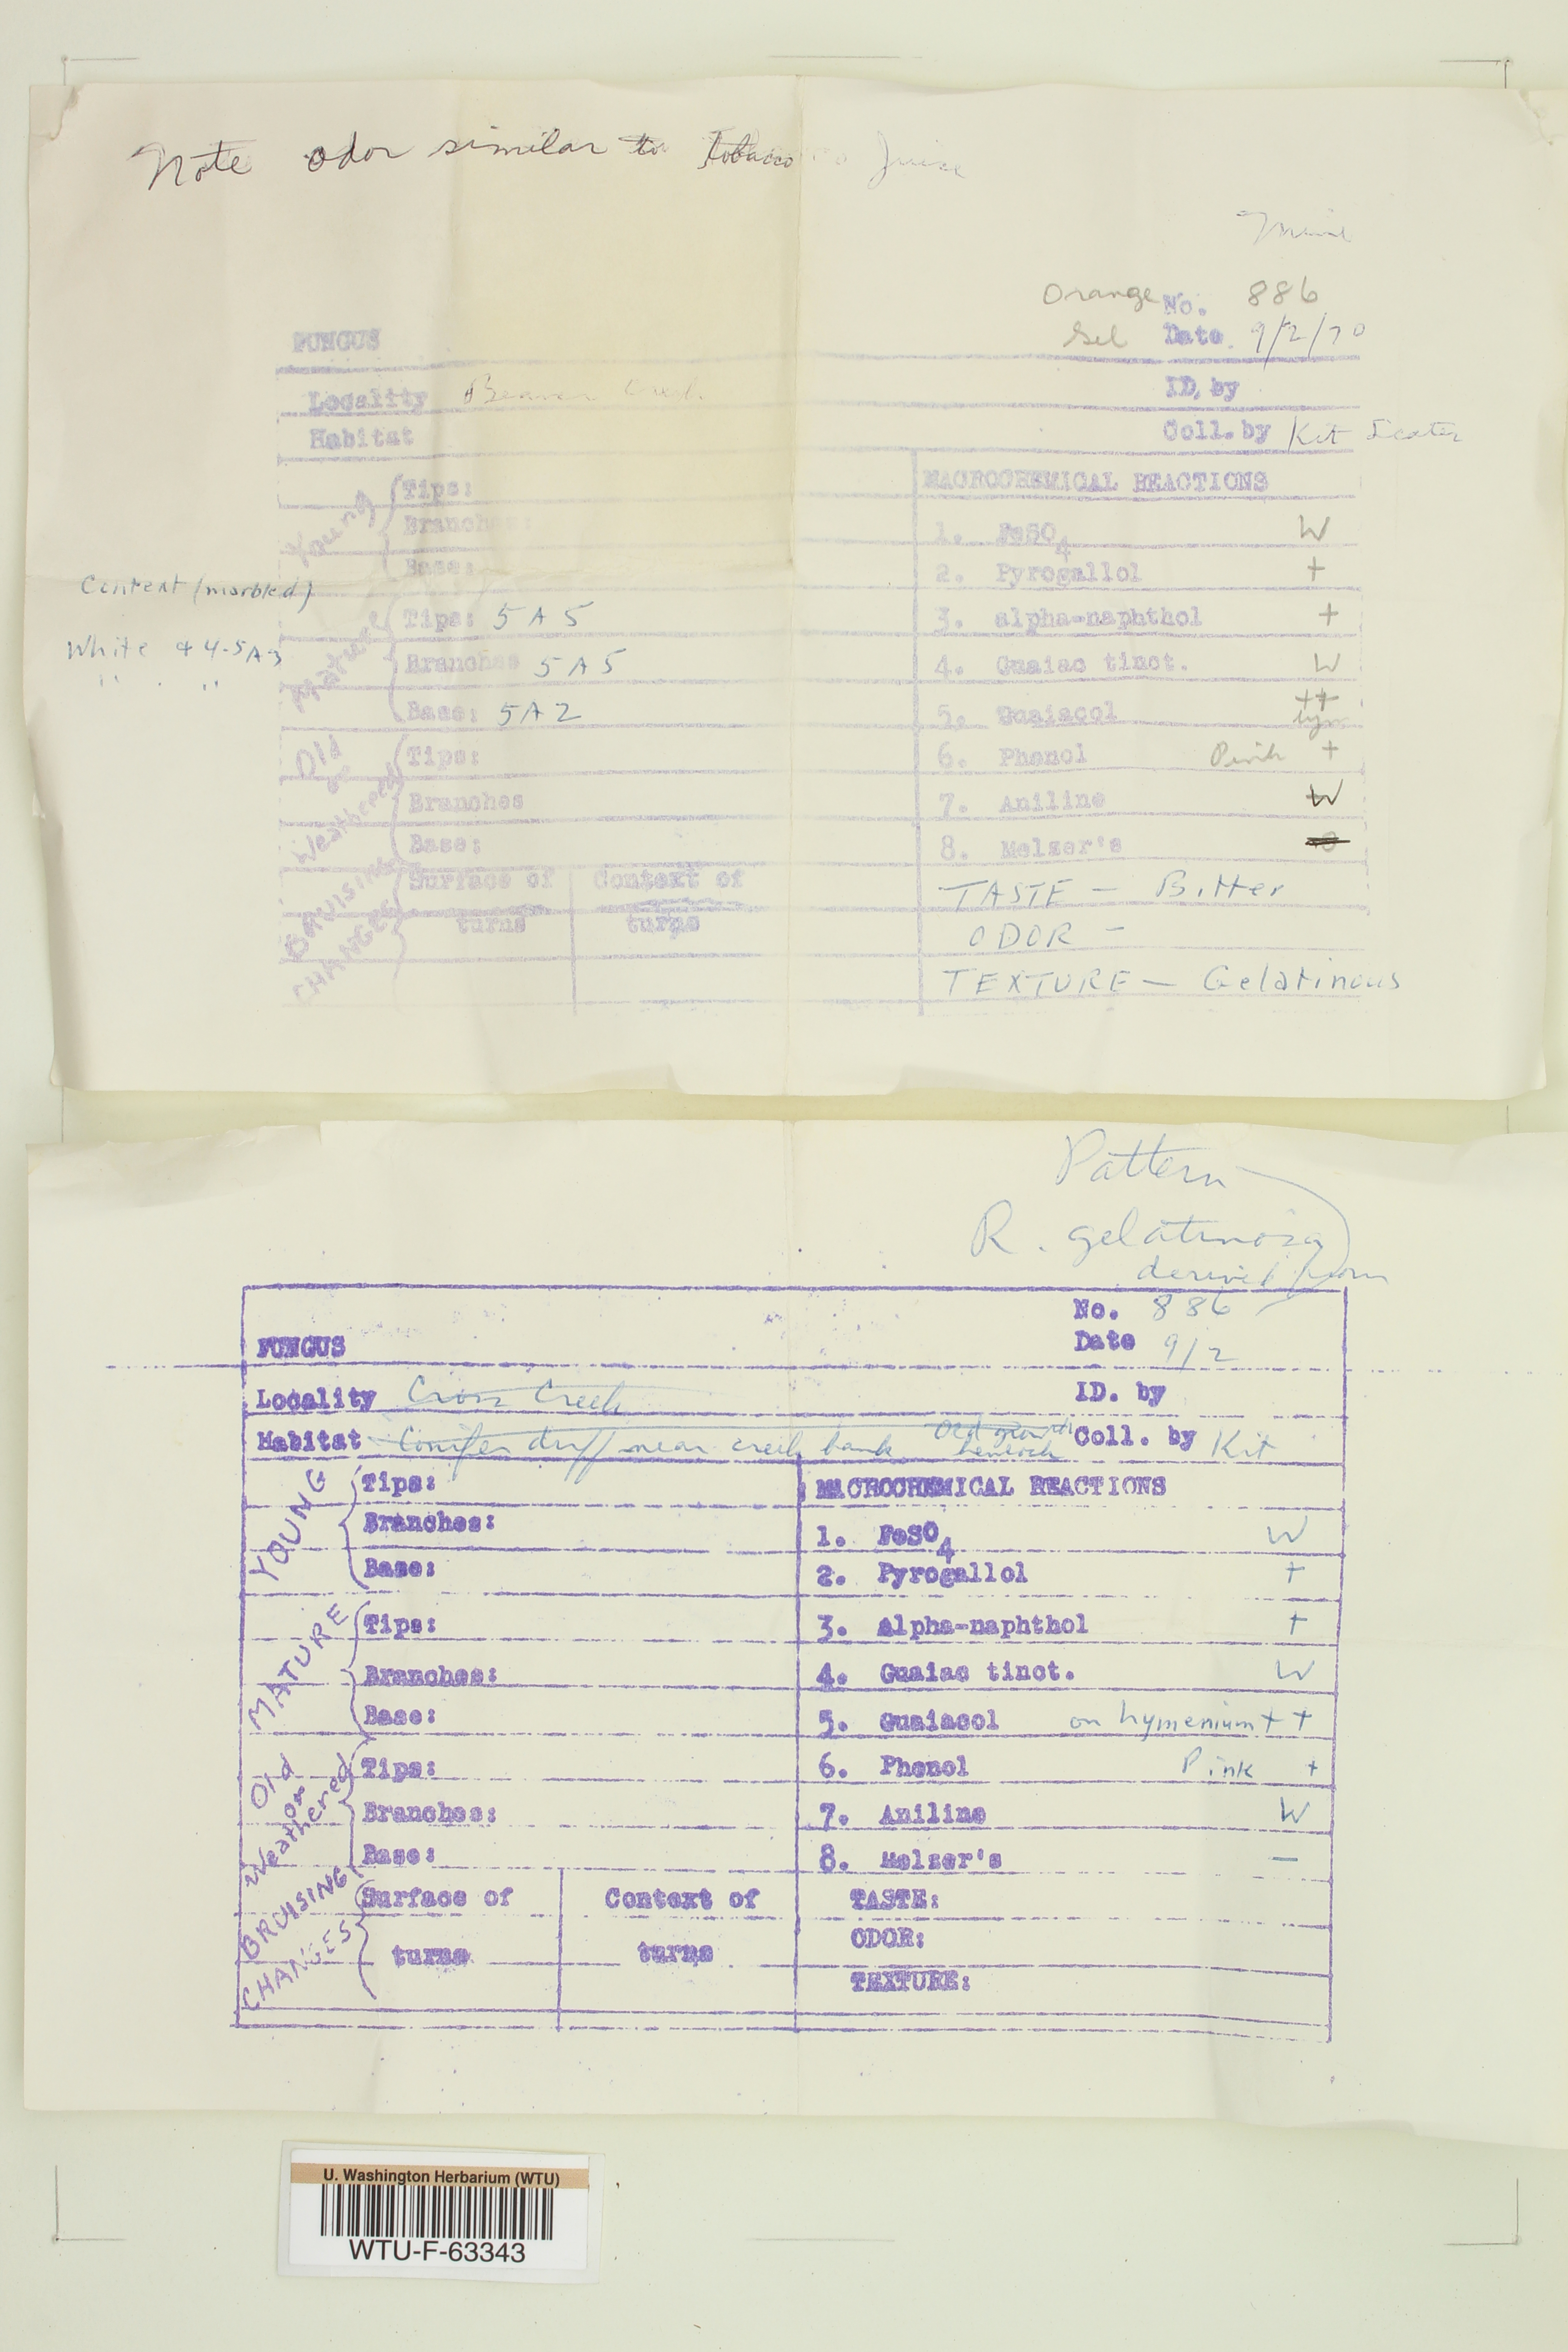 Note odor similar to Tobacco Juice
Orange No. 886
Gel Date 9/2/70
FUNGUS
Locality Beaver Creek
ID. by
Habitat
Coll. by Kit Scates
Young
Tips:
Branches:
Base:
MACROCHEMICAL REACTIONS
1. FeSO4 W
2. Pyrogallol +
3. alpha-naphthol +
4. Guaiac tinct. W
5. Guaiacol ++
hym
6. Phenol Pink +
7. Aniline W
8. Melzer's
TASTE - Bitter
ODOR -
TEXTURE - Gelatinous
Context (marbled)
White & 4-5A3
" . "
Mature
Tips: 5 A 5
Branches 5 A 5
Base: 5A2
Old or Weathered
Tips:
Branches
Base:
BRUISING CHANGES
Surface of
turns
Context of
turns
Pattern
R. gelatinosa
derived from
No. 886
FUNGUS
Date 9/2
Locality Cross Creek
ID. by
Habitat Conifer duff near creek bank Old growth hemlock
Coll. by Kit
YOUNG
Tips:
Branches:
Base:
MATURE
Tips:
Branches:
Base:
Old or Weathered
Tips:
Branches:
Base:
BRUISING CHANGES
Surface of
turns
Context of
turns
MACROCHEMICAL REACTIONS
1. FeSO4 W
2. Pyrogallol +
3. Alpha-naphthol +
4. Guaiac tinct. W
5. Guaiacol on hymenium ++
6. Phenol Pink +
7. Aniline W
8. Melzer's —
TASTE:
ODOR:
TEXTURE:
U. Washington Herbarium (WTU)
WTU-F-63343